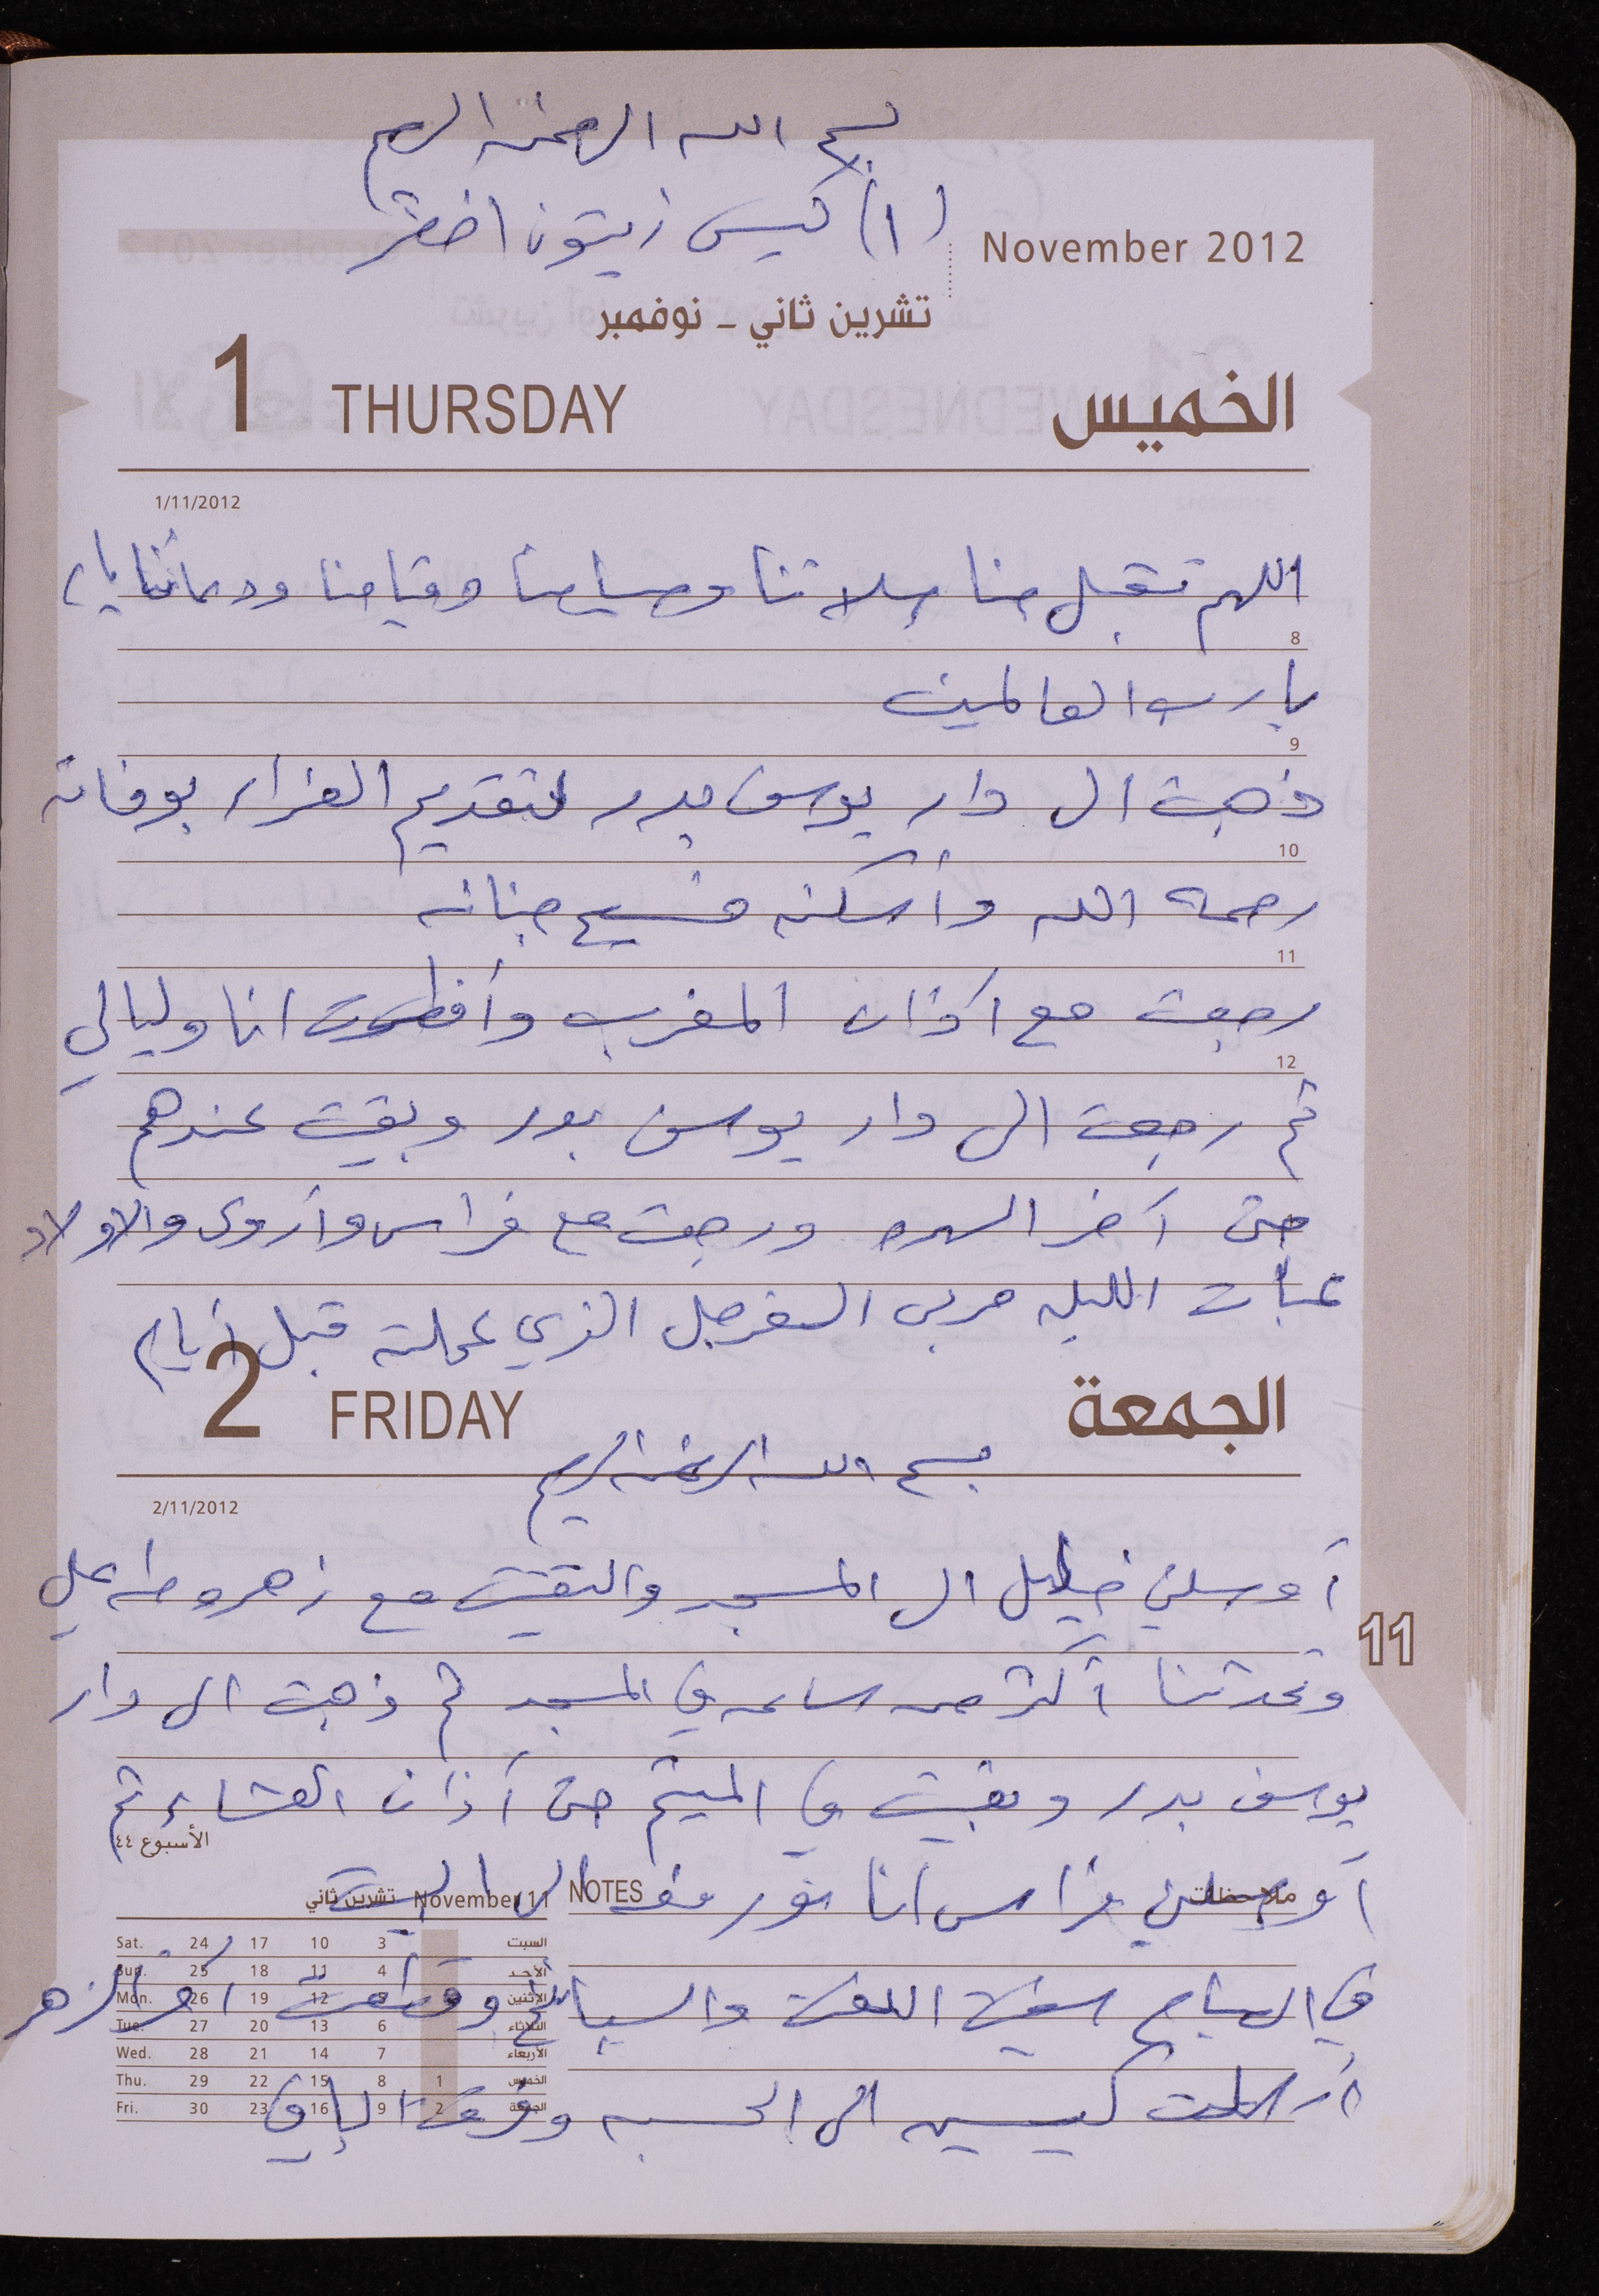 بسم الله الرحمن الرحيم
(١) كيس زيتون اخضر
November 2012
تشرين ثاني - نوفمبر
1 THURSDAY الخميس
1/11/2012
اللهم تقبل منا صلاتنا وصيامنا وقيامنا ودعائنا يا ر
8
يا رب العالمين
9
ذهبت الى دار يوسف بدر لتقديم العزاء بوفاته
10
رحمه الله وأسكنه فسيح جنانه
11
رجعت مع اذان المغرب وأفطرت انا وليالي
12
ثم رجعت الى دار يوسف بدر وبقيت عندهم
حتى آخر السهره ورجعت مع فراس وأروى والاولاد
عبأت الليله مربى السفرجل الذي عملته قبل أيام
2 FRIDAY الجمعة
بسم الله الرحمن الرحيم
2/11/2012
أوصلني خليل الى المسجد والتقيت مع زهر وطه علي
11
وتحدثنا أكثر من ساعه في المسجد ثم ذهبت الى دار
يوسف بدر وبقيت في الميتم حتى آذان العشاء ثم
الأسبوع ٤٤
أوصلني فراس انا الى البيت
تشرين ثاني November 11 NOTES ملاحظات
في الصباح سقيت اللفت والسبانخ وقطعت الزهر
أرسلت كيسين الى الحسبه وفرقت الباقي
Sat. 24 17 10 3 السبت
Sun. 25 18 11 4 الأحد
Mon. 26 19 12 5 الإثنين
Tue. 27 20 13 6 الثلاثاء
Wed. 28 21 14 7 الأربعاء
Thu. 29 22 15 8 1 الخميس
Fri. 30 23 16 9 2 الجمعة